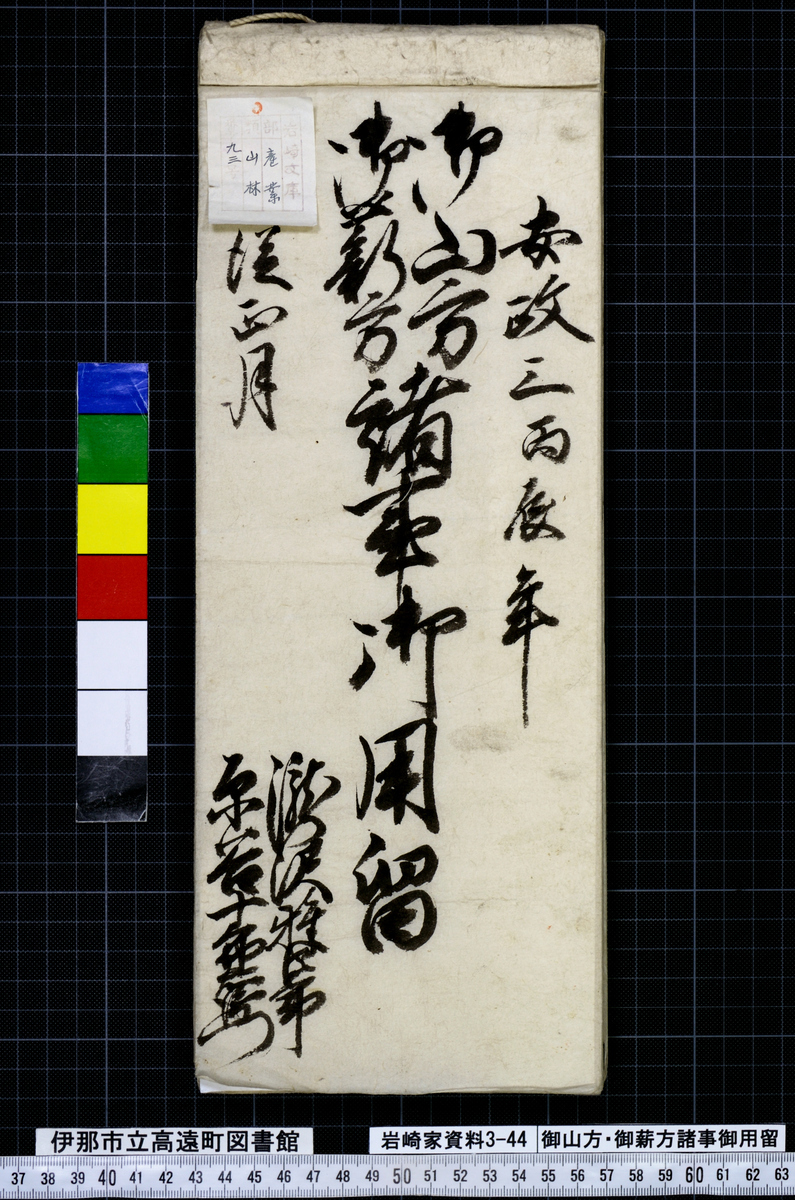 安政三丙辰年
御山方
御薪方
諸事御用留
従正月
瀧沢
原
岩崎文庫
部 産業
項 山林
九三
伊那市立高遠町図書館
岩崎家資料3-44
御山方・御薪方諸事御用留
37 38 39 40 41 42 43 44 45 46 47 48 49 50 51 52 53 54 55 56 57 58 59 60 61 62 63